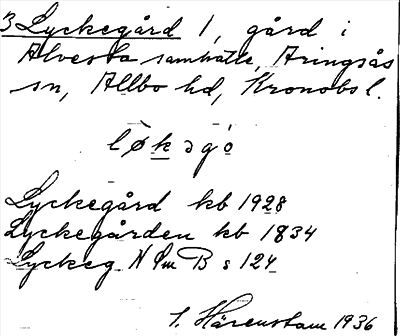 3 Lyckegård 1, gård i
Alvesta samhälle, Aringsås
sn, Allbo hd, Kronobs l.
Lyckegård kb 1928
Lyckegården kb 1834
Lyckeg N Sm B s 124
S. Härenstam 1936